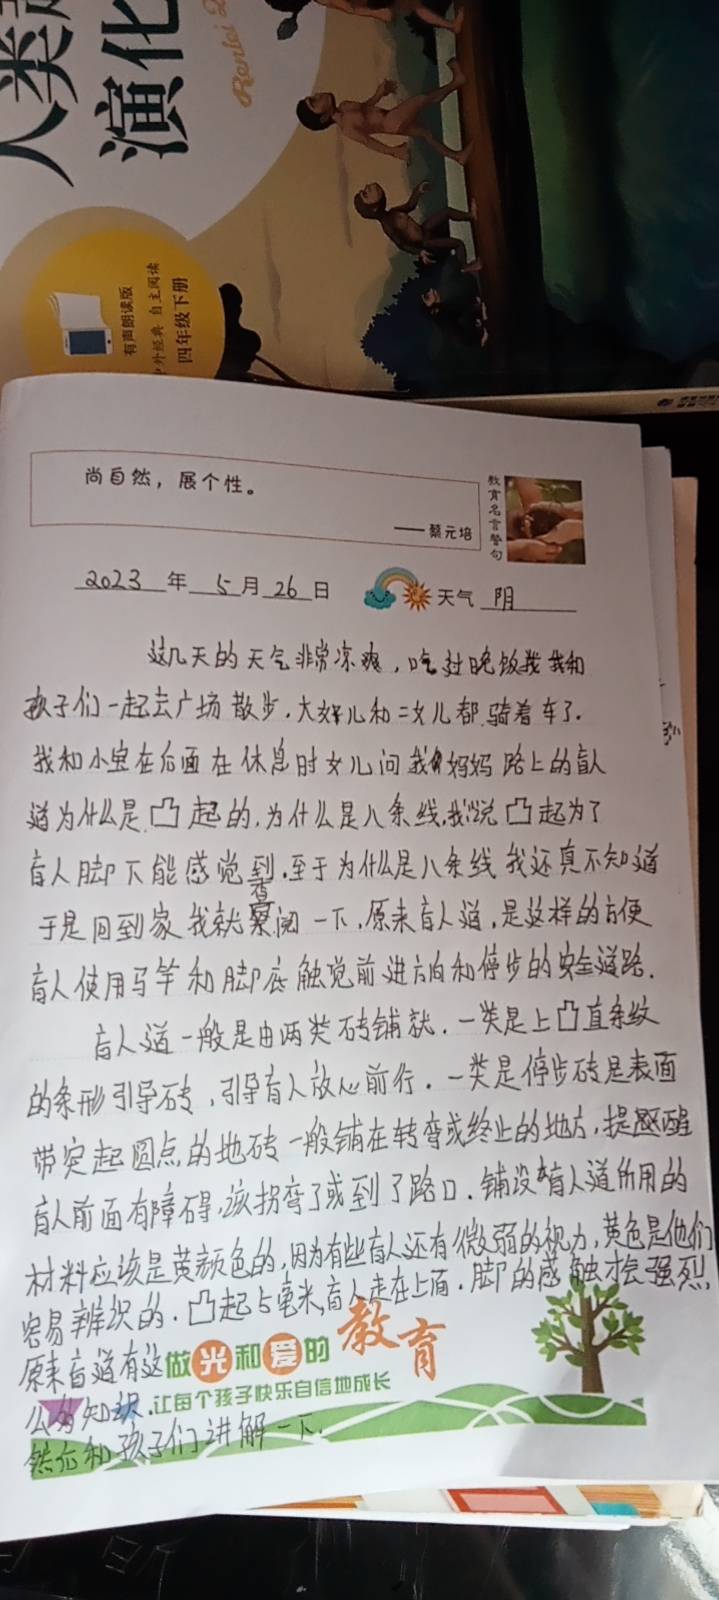 人类起
演化
Renlei
有声朗读版
中外经典 自主阅读
四年级下册
尚自然，展个性。
——蔡元培
教育名言警句
2023年5月26日 天气 阴
这几天的天气非常凉爽，吃过晚饭我和
孩子们一起去广场散步.大女儿和二女儿都骑着车了.
我和小宝在后面在休息时女儿问我妈妈路上的盲人
道为什么是凸起的,为什么是八条线,我说凸起为了
盲人脚下能感觉到.至于为什么是八条线我还真不知道
于是回到家我就查阅一下,原来盲人道,是这样的方便
盲人使用马竿和脚底触觉前进方向和停步的安全道路.
盲人道一般是由两类砖铺就.一类是上凸直条纹
的条形引导砖,引导盲人放心前行.一类是停步砖是表面
带突起圆点的地砖一般铺在转弯或终止的地方,提醒
盲人前面有障碍,该拐弯了或到了路口.铺设盲人道所用的
材料应该是黄颜色的,因为有些盲人还有微弱的视力,黄色是他们
容易辨织的.凸起5毫米,盲人走在上面.脚的感触才会强烈,
原来盲道有这
么多知识.
然后和孩子们讲解一下.
做光和爱的教育
让每个孩子快乐自信地成长